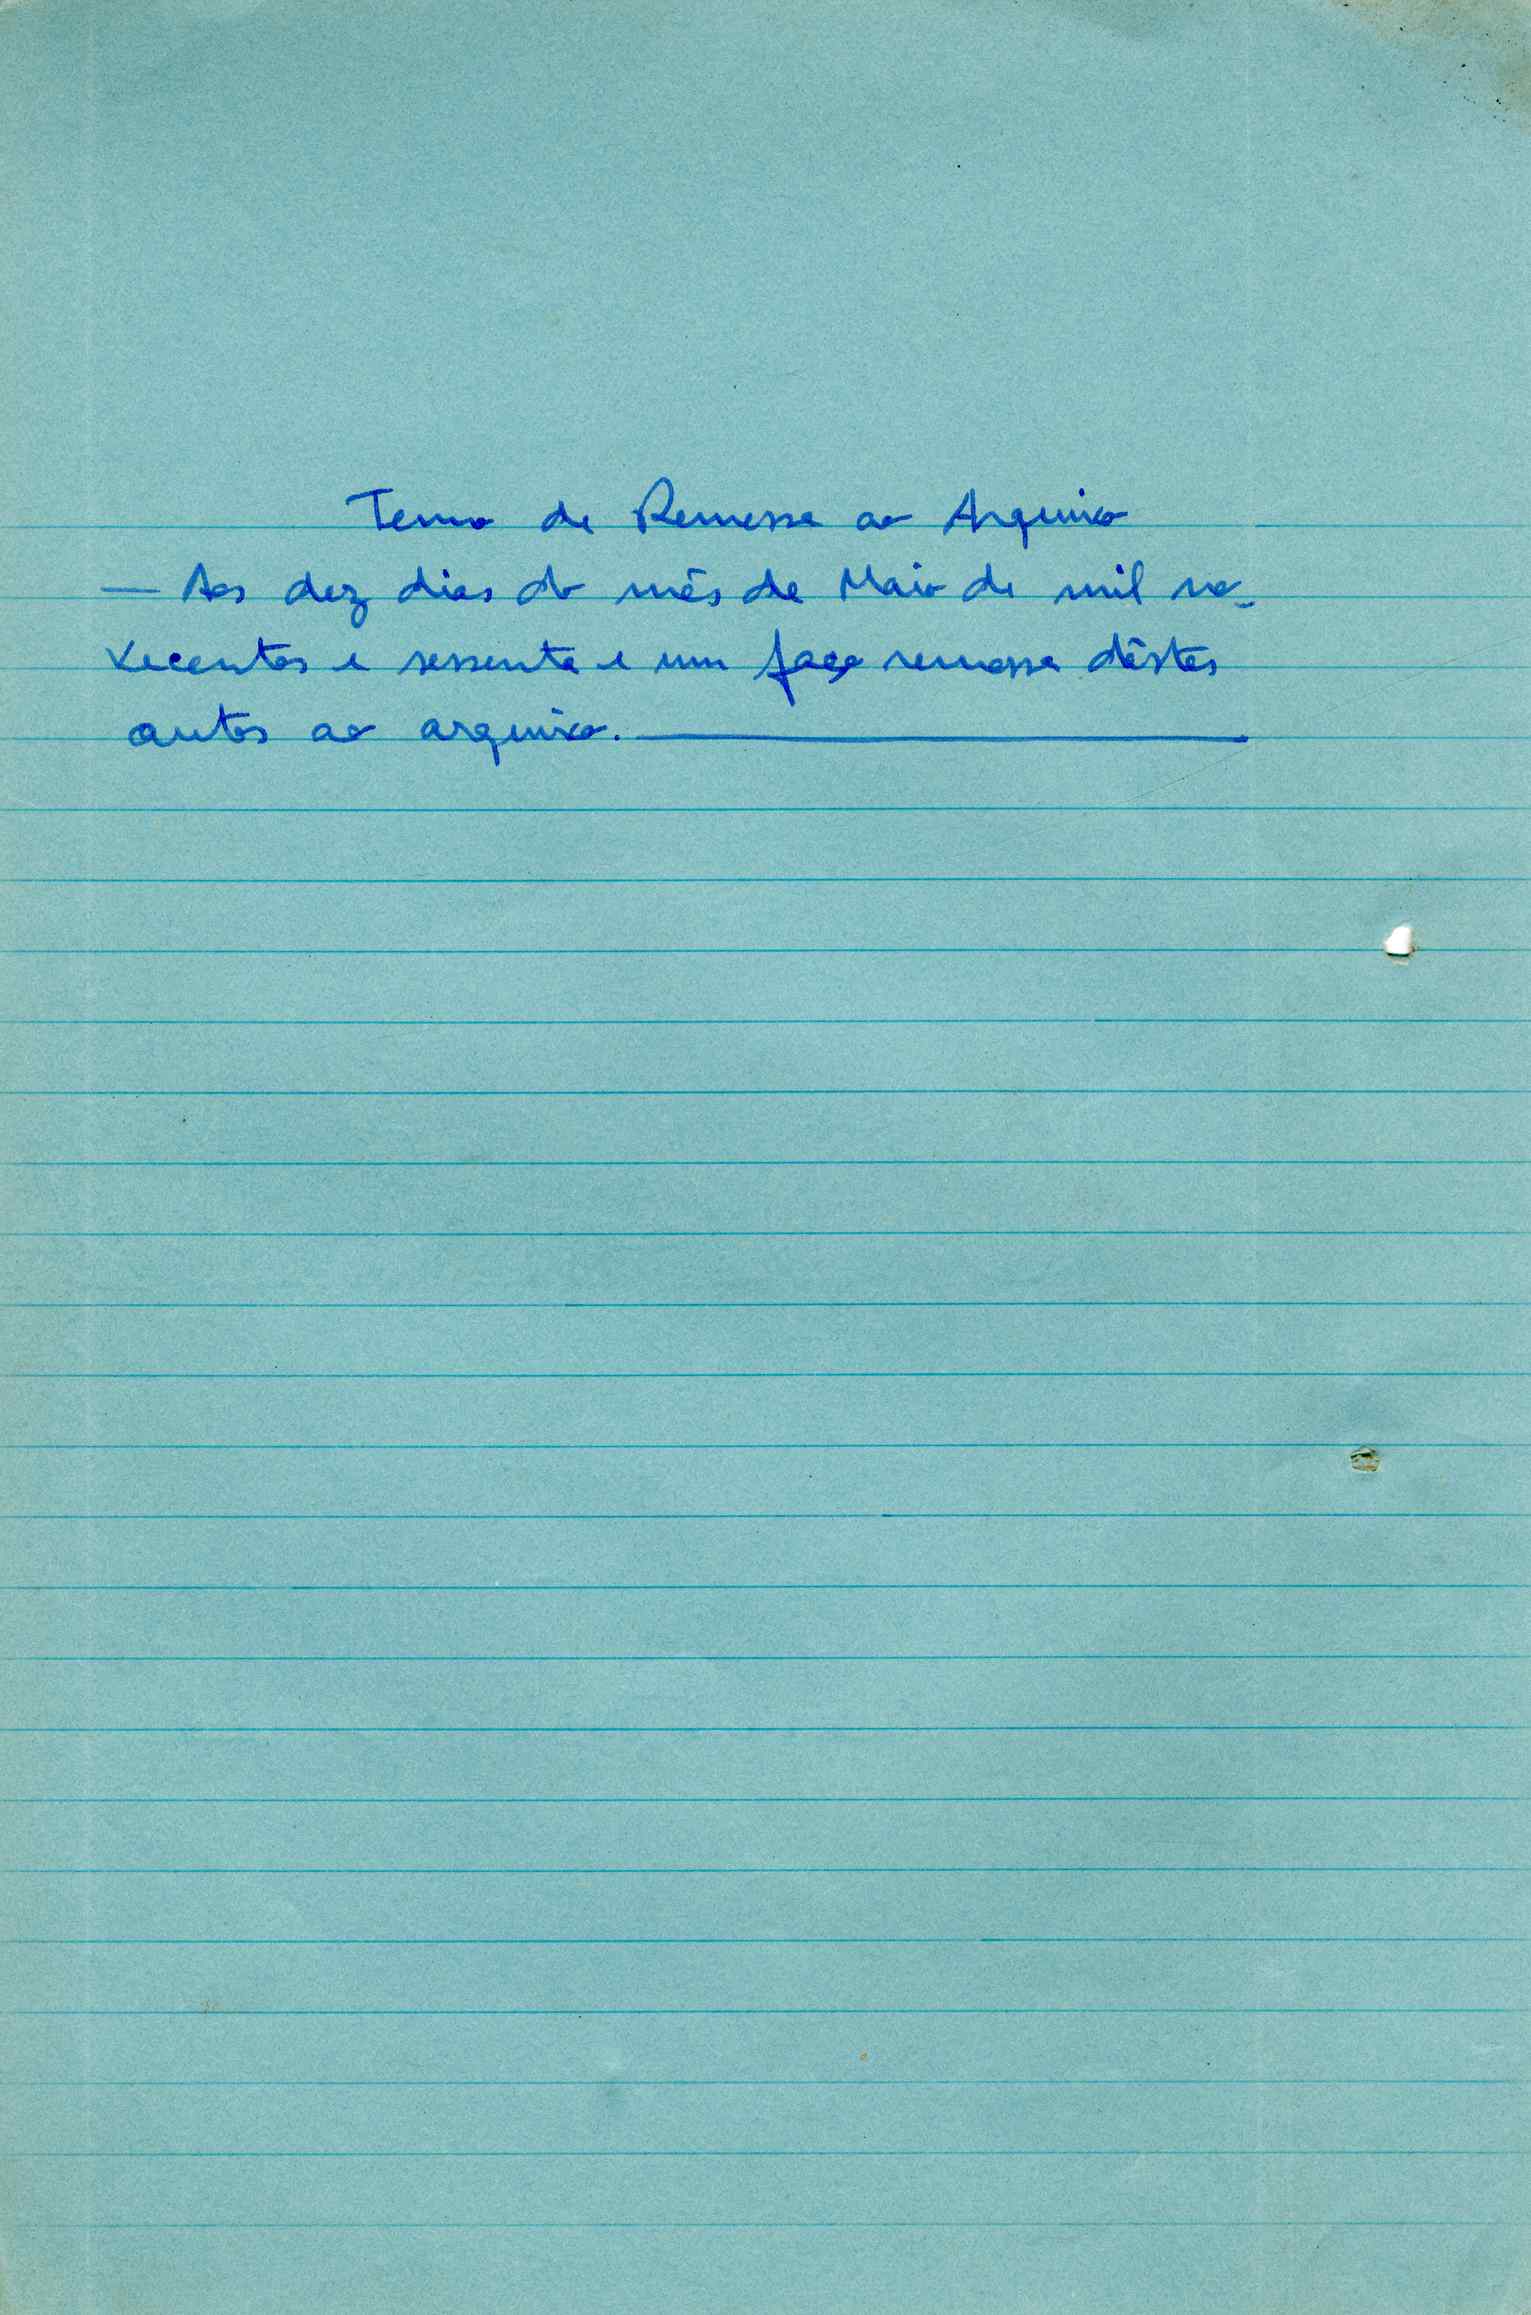 Termo de Remessa ao Arquivo
— Aos dez dias do mês de Maio de mil no-
vecentos e sessenta e um faço remessa dêstes
autos ao arquivo. —